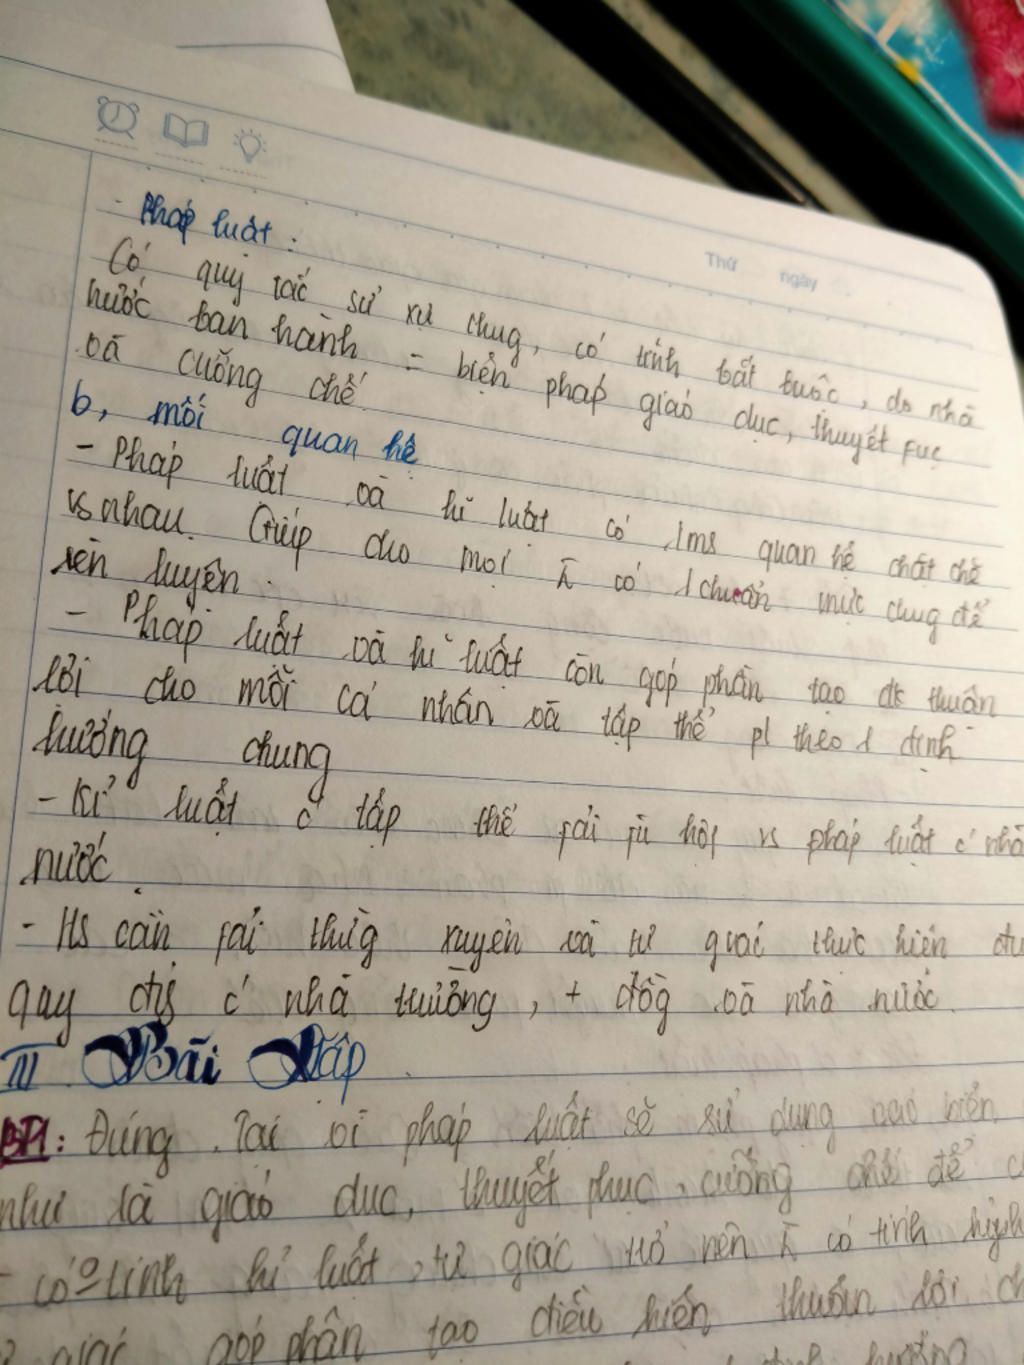 Thứ ngày
- Pháp luật :
Có quy tắc sử xự chug, có tính bắt buộc, do nhà
nước ban hành = biện pháp giáo dục, thuyết fục
và cưỡng chế
b, mối quan hệ
- Pháp luật và kỉ luật có 1 ms quan hệ chặt chẽ
vs nhau. Giúp cho mọi có 1 chuẩn mực chug để
rèn luyện.
- Pháp luật và kỉ luật còn góp phần tạo đk thuận
lợi cho mỗi cá nhân và tập thể pt theo 1 định
hướng chung
- Kỉ luật c̉ tập thể fải fù hợp vs pháp luật c̉ nhà
nước.
- Hs cần fải thườg xuyên và tự giác thực hiện
quy c̉ nhà trường, + đồg và nhà nước.
III Bài Tập
BT1: Đúng. Tại vì pháp luật sẽ sử dụng các biện
như là giáo dục, thuyết phục, cưỡng chế để
- có tính kỉ luật, tự giác trở nên có tính
giác góp phần tạo điều kiện thuận lợi
hướng